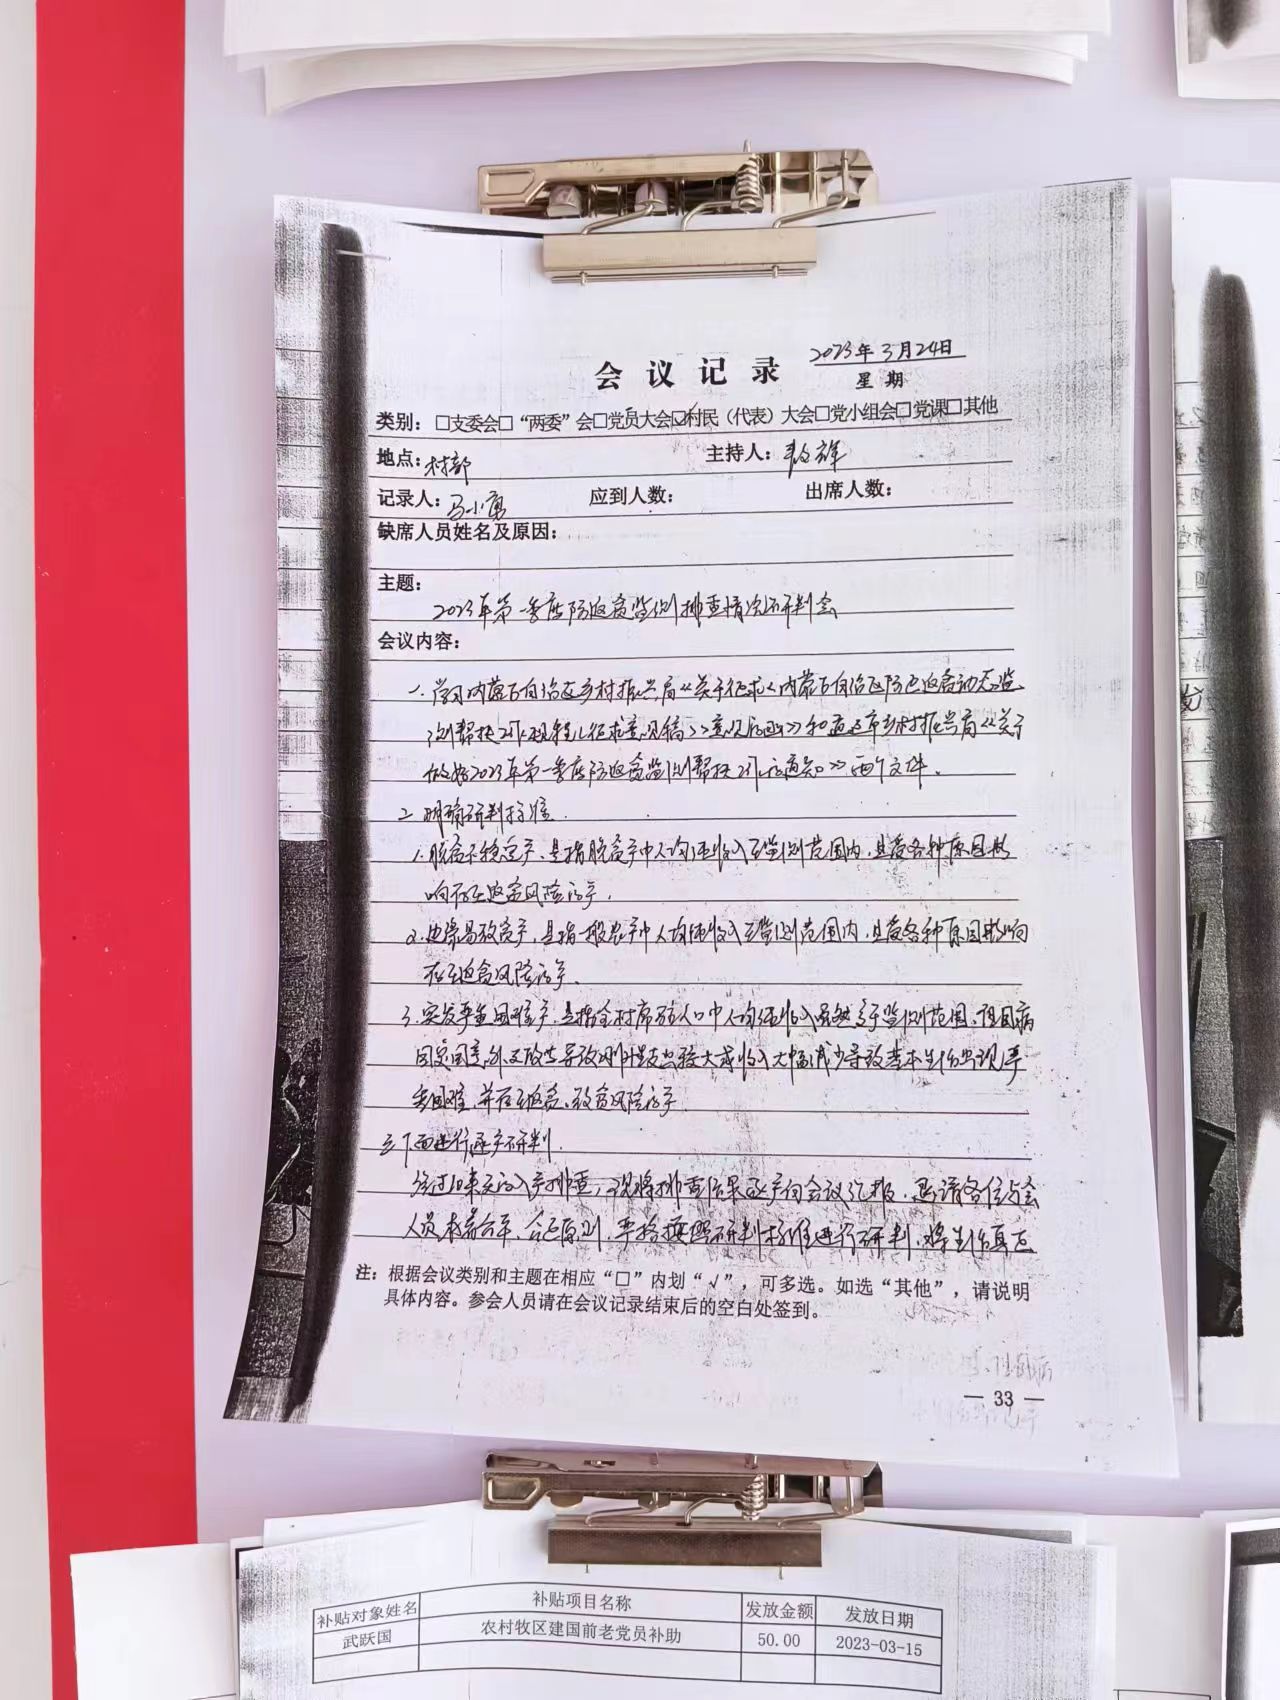 2023年3月24日
会议记录
星期
类别：□支委会□“两委”会□党员大会☑村民（代表）大会□党小组会□党课□其他
地点：村部 主持人：
记录人：马小勇 应到人数： 出席人数：
缺席人员姓名及原因：
主题：
2023年第一季度防返贫监测排查情况研判会
会议内容：
一.学习内蒙古自治区乡村振兴局《关于征求《内蒙古自治区防止返贫动态监
测帮扶工作 征求意见稿》意见的函》和通辽市乡村振兴局《关于
做好2023年第一季度防返贫监测帮扶工作的通知》两个文件.
二.明确研判标准.
1.脱贫不稳定户,是指脱贫户中人均纯收入在监测范围内,且受各种原因影
响存在返贫风险的户.
2.边缘易致贫户,是指一般农户中人均纯收入在监测范围内,且受各种原因影响
存在返贫风险的户.
3.突发严重困难户,是指全村 人口中人均纯收入虽然高于监测范围,但因病
因灾因意外 等导致刚性支出较大或收入大幅减少导致基本生活出现严
重困难,并存在返贫、致贫风险的户
三.下面进行逐户研判.
经过10来天的入户排查,现将排查结果逐户向会议汇报,邀请各位与会
人员本着公平、公正原则,严格按照研判标准进行研判,将生活真正
注：根据会议类别和主题在相应“□”内划“√”，可多选。如选“其他”，请说明
具体内容。参会人员请在会议记录结束后的空白处签到。
— 33 —
补贴对象姓名 补贴项目名称 发放金额 发放日期
武跃国 农村牧区建国前老党员补助 50.00 2023-03-15